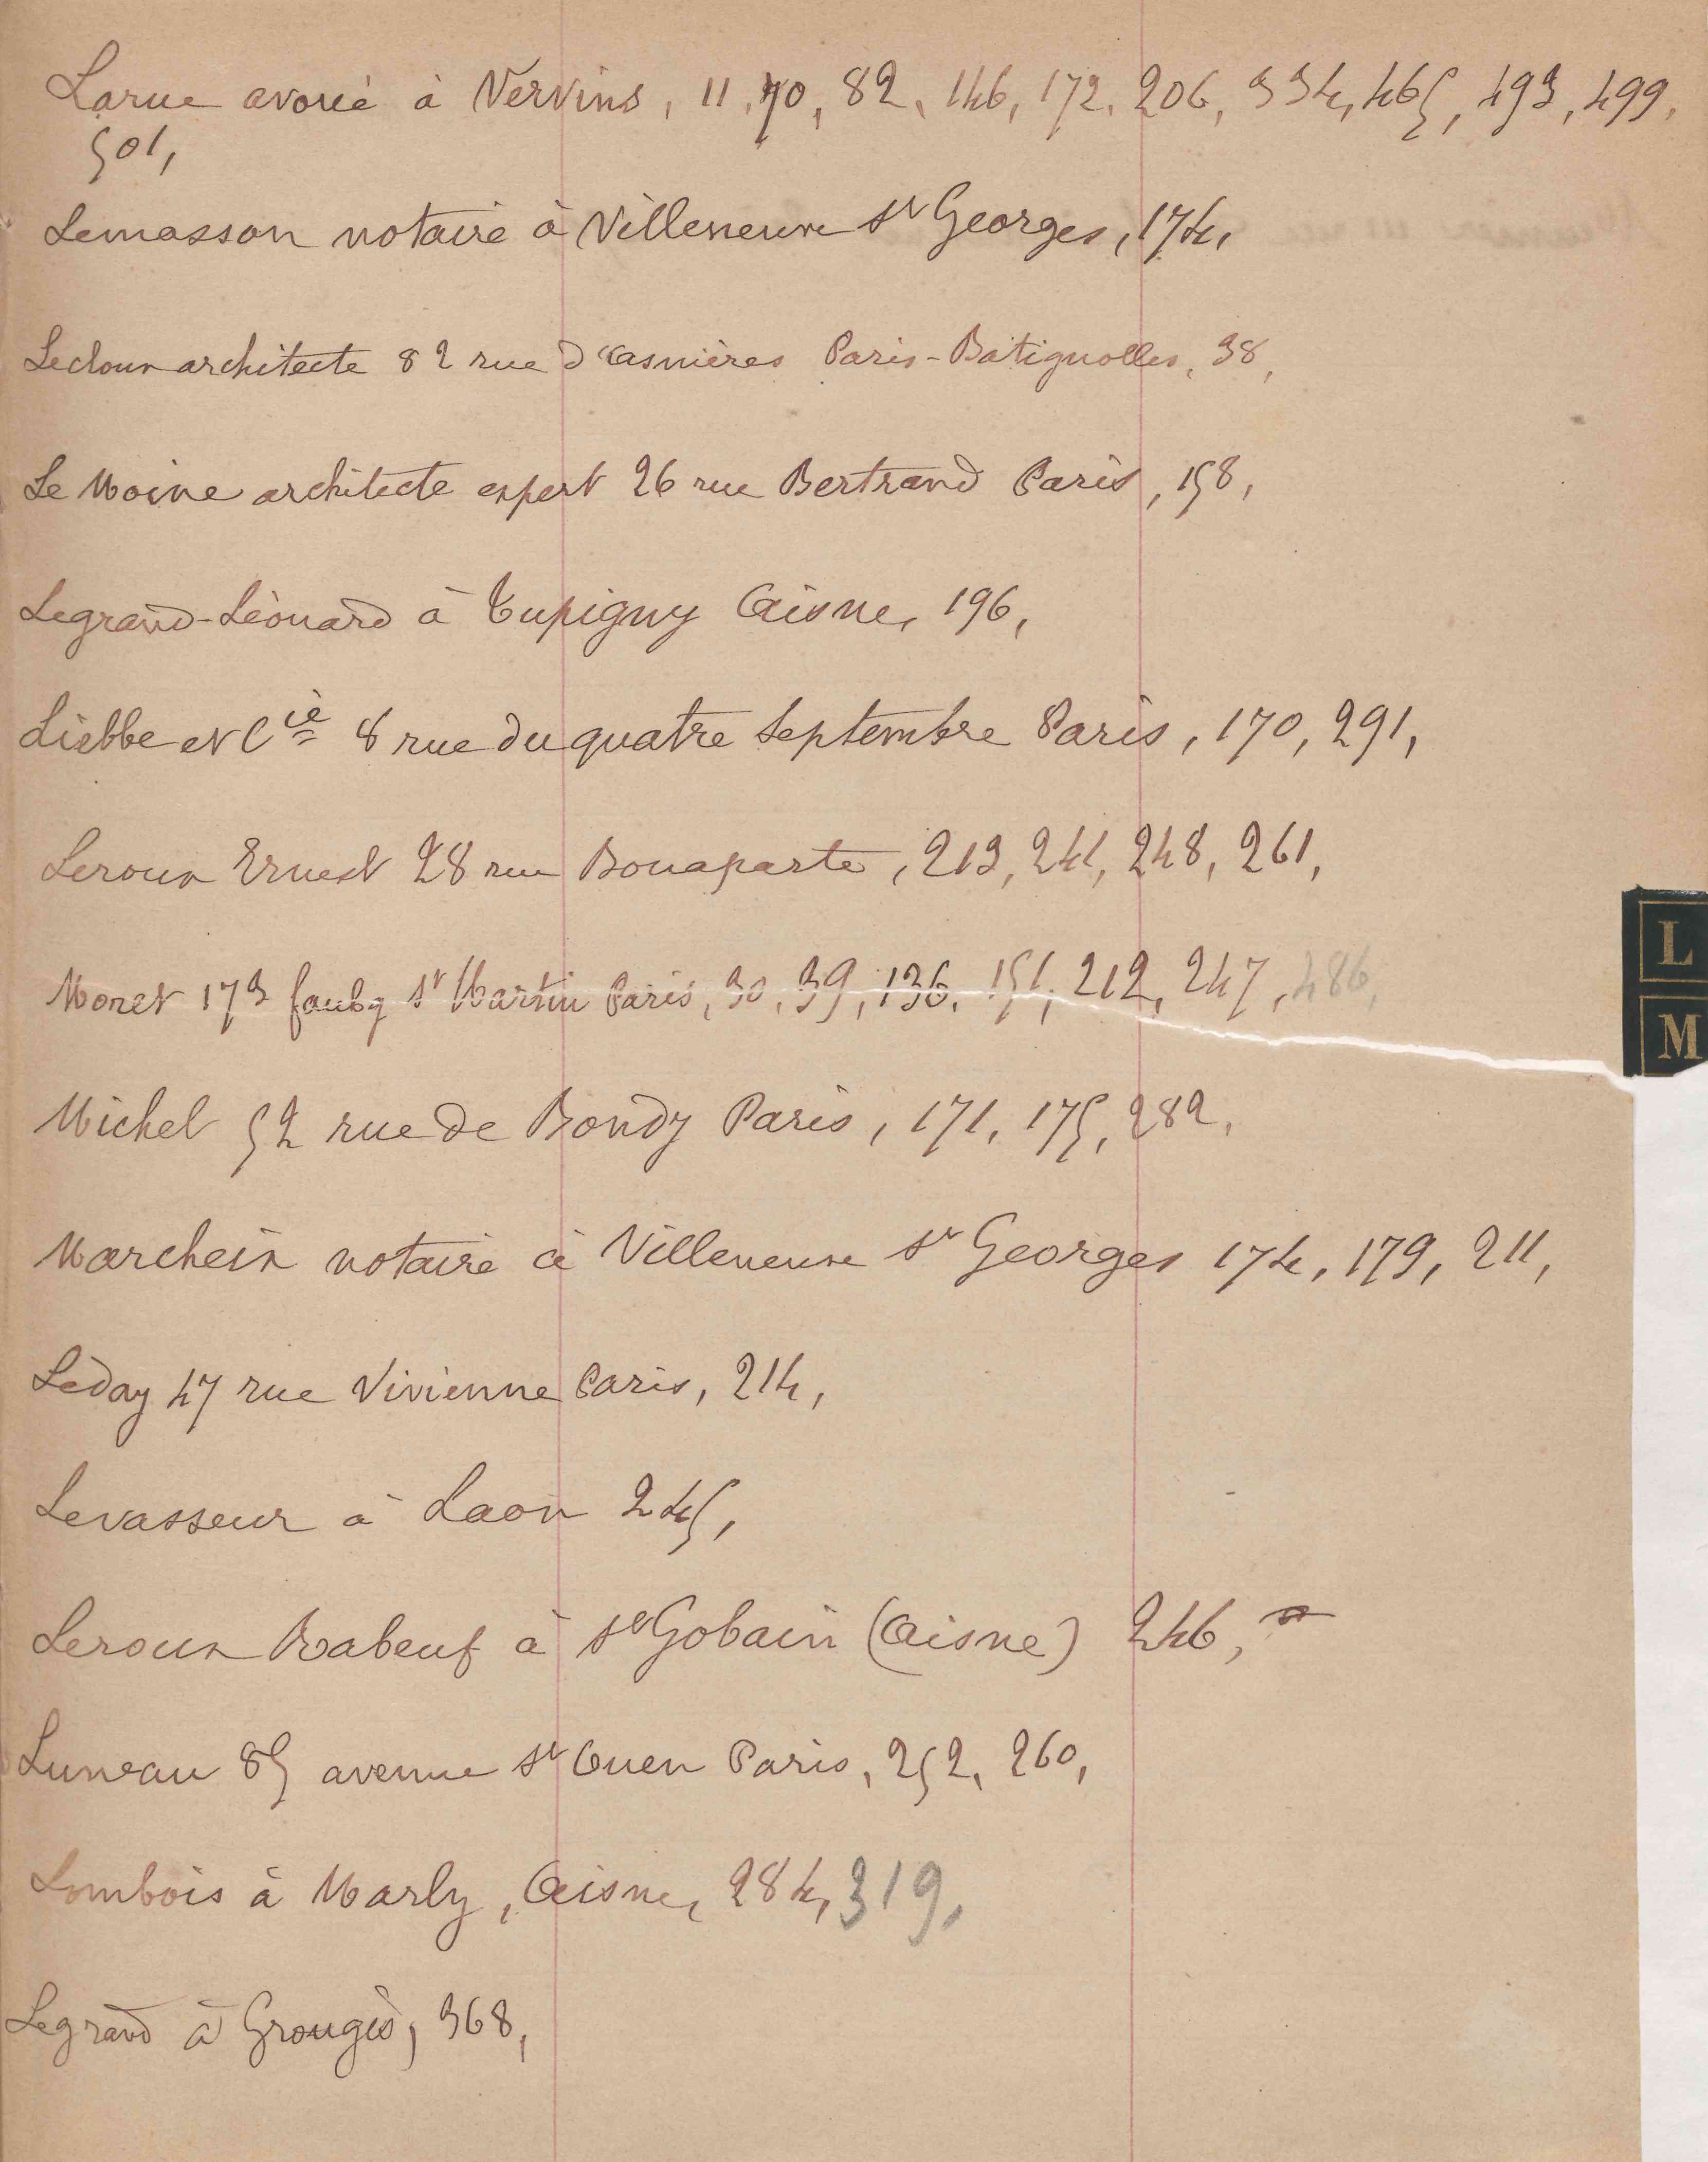 Larue avoué à Vervins, 11, 70, 82, 146, 172, 206, 334, 465, 493, 499,
501,
Lemasson notaire à Villeneuve St Georges, 174,
Lecloux architecte 82 rue d'Asnières Paris-Batignolles, 38,
Le Moine architecte expert 26 rue Bertrand Paris, 158,
Legrand-Léonard à Tupigny Aisne, 196,
Liebbe et Cie 8 rue du quatre Septembre Paris, 170, 291,
Leroux Ernest 28 rue Bonaparte, 213, 241, 248, 261,
Moret 173 faubg St Martin Paris, 30, 39, 136, 151, 212, 247, 486,
L
M
Michel 52 rue de Bondy Paris, 171, 175, 282,
notaire à Villeneuve St Georges 174, 179, 211,
Léday 47 rue Vivienne Paris, 214,
Levasseur à Laon 245,
Leroux Rabeuf à St Gobain (Aisne) 246,
Luneau 85 avenue St Ouen Paris, 252, 260,
Lombois à Marly, Aisne, 284, 319,
Legrand à Grougis, 368,